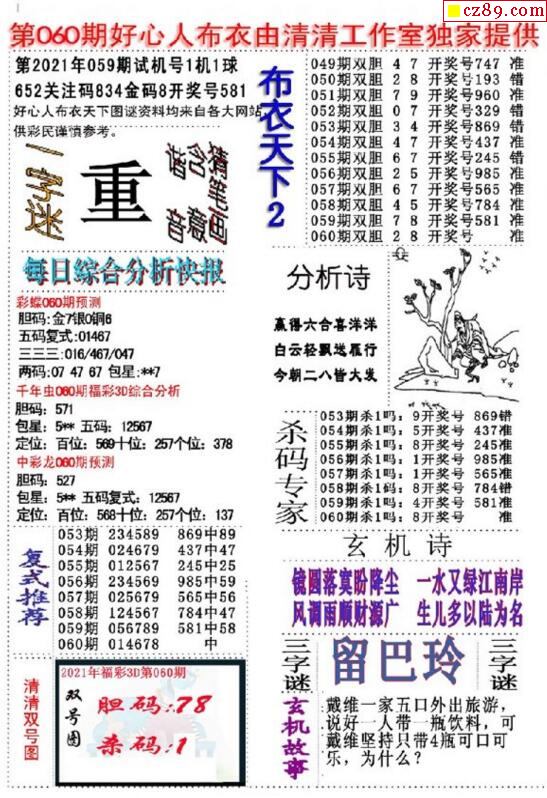 cz89.com
第060期好心人布衣由清清工作室独家提供
第2021年059期试机号1机1球
652关注码834金码8开奖号581
好心人布衣天下图谜资料均来自各大网站
供彩民谨慎参考。
一字迷
重
猜笔画
含意
谐音
每日综合分析快报
彩蝶060期预测
胆码:金7银0铜6
五码复式:01467
三三三:016/467/047
两码:07 47 67 包星:**7
千年虫060期福彩3D综合分析
胆码: 571
包星: 5** 五码: 12567
定位: 百位: 569十位: 257个位: 378
中彩龙060期预测
胆码: 527
包星: 5** 五码复式: 12567
定位: 百位: 568十位: 257个位: 137
复式推荐
053期 234589 869中89
054期 024679 437中47
055期 012567 245中25
056期 234569 985中59
057期 025679 565中56
058期 124567 784中47
059期 056789 581中58
060期 014678 中
清清双号图
2021年福彩3D第060期
双号图
胆码:78
杀码:1
布衣天下2
049期双胆 4 7 开奖号747 准
050期双胆 2 8 开奖号193 错
051期双胆 7 9 开奖号960 准
052期双胆 0 7 开奖号329 错
053期双胆 3 4 开奖号869 错
054期双胆 4 7 开奖号437 准
055期双胆 6 7 开奖号245 错
056期双胆 2 5 开奖号985 准
057期双胆 6 7 开奖号565 准
058期双胆 4 5 开奖号784 准
059期双胆 7 8 开奖号581 准
060期双胆 2 8 开奖号 准
分析诗
赢得六合喜洋洋
白云轻飘送雁行
今朝二八皆大发
杀码专家
053期杀1吗: 9开奖号 869错
054期杀1吗: 5开奖号 437准
055期杀1吗: 8开奖号 245准
056期杀1吗: 1开奖号 985准
057期杀1吗: 1开奖号 565准
058期杀1码: 8开奖号 784错
059期杀1吗: 4开奖号 581准
060期杀1吗: 8开奖号 准
玄机诗
镜圆落寞盼降尘 一水又绿江南岸
风调雨顺财源广 生儿多以陆为名
三字谜
留巴玲
三字谜
玄机故事
戴维一家五口外出旅游，
说好一人带一瓶饮料，可
戴维坚持只带4瓶可口可
乐，为什么？